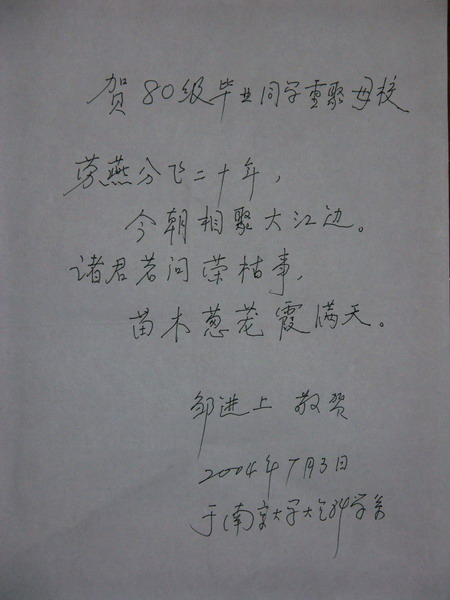 贺80级毕业同学重聚母校
劳燕分飞二十年，
今朝相聚大江边。
诸君若问荣枯事，
苗木葱茏霞满天。
邹进上 敬贺
2004年7月3日
于南京大学大气科学系